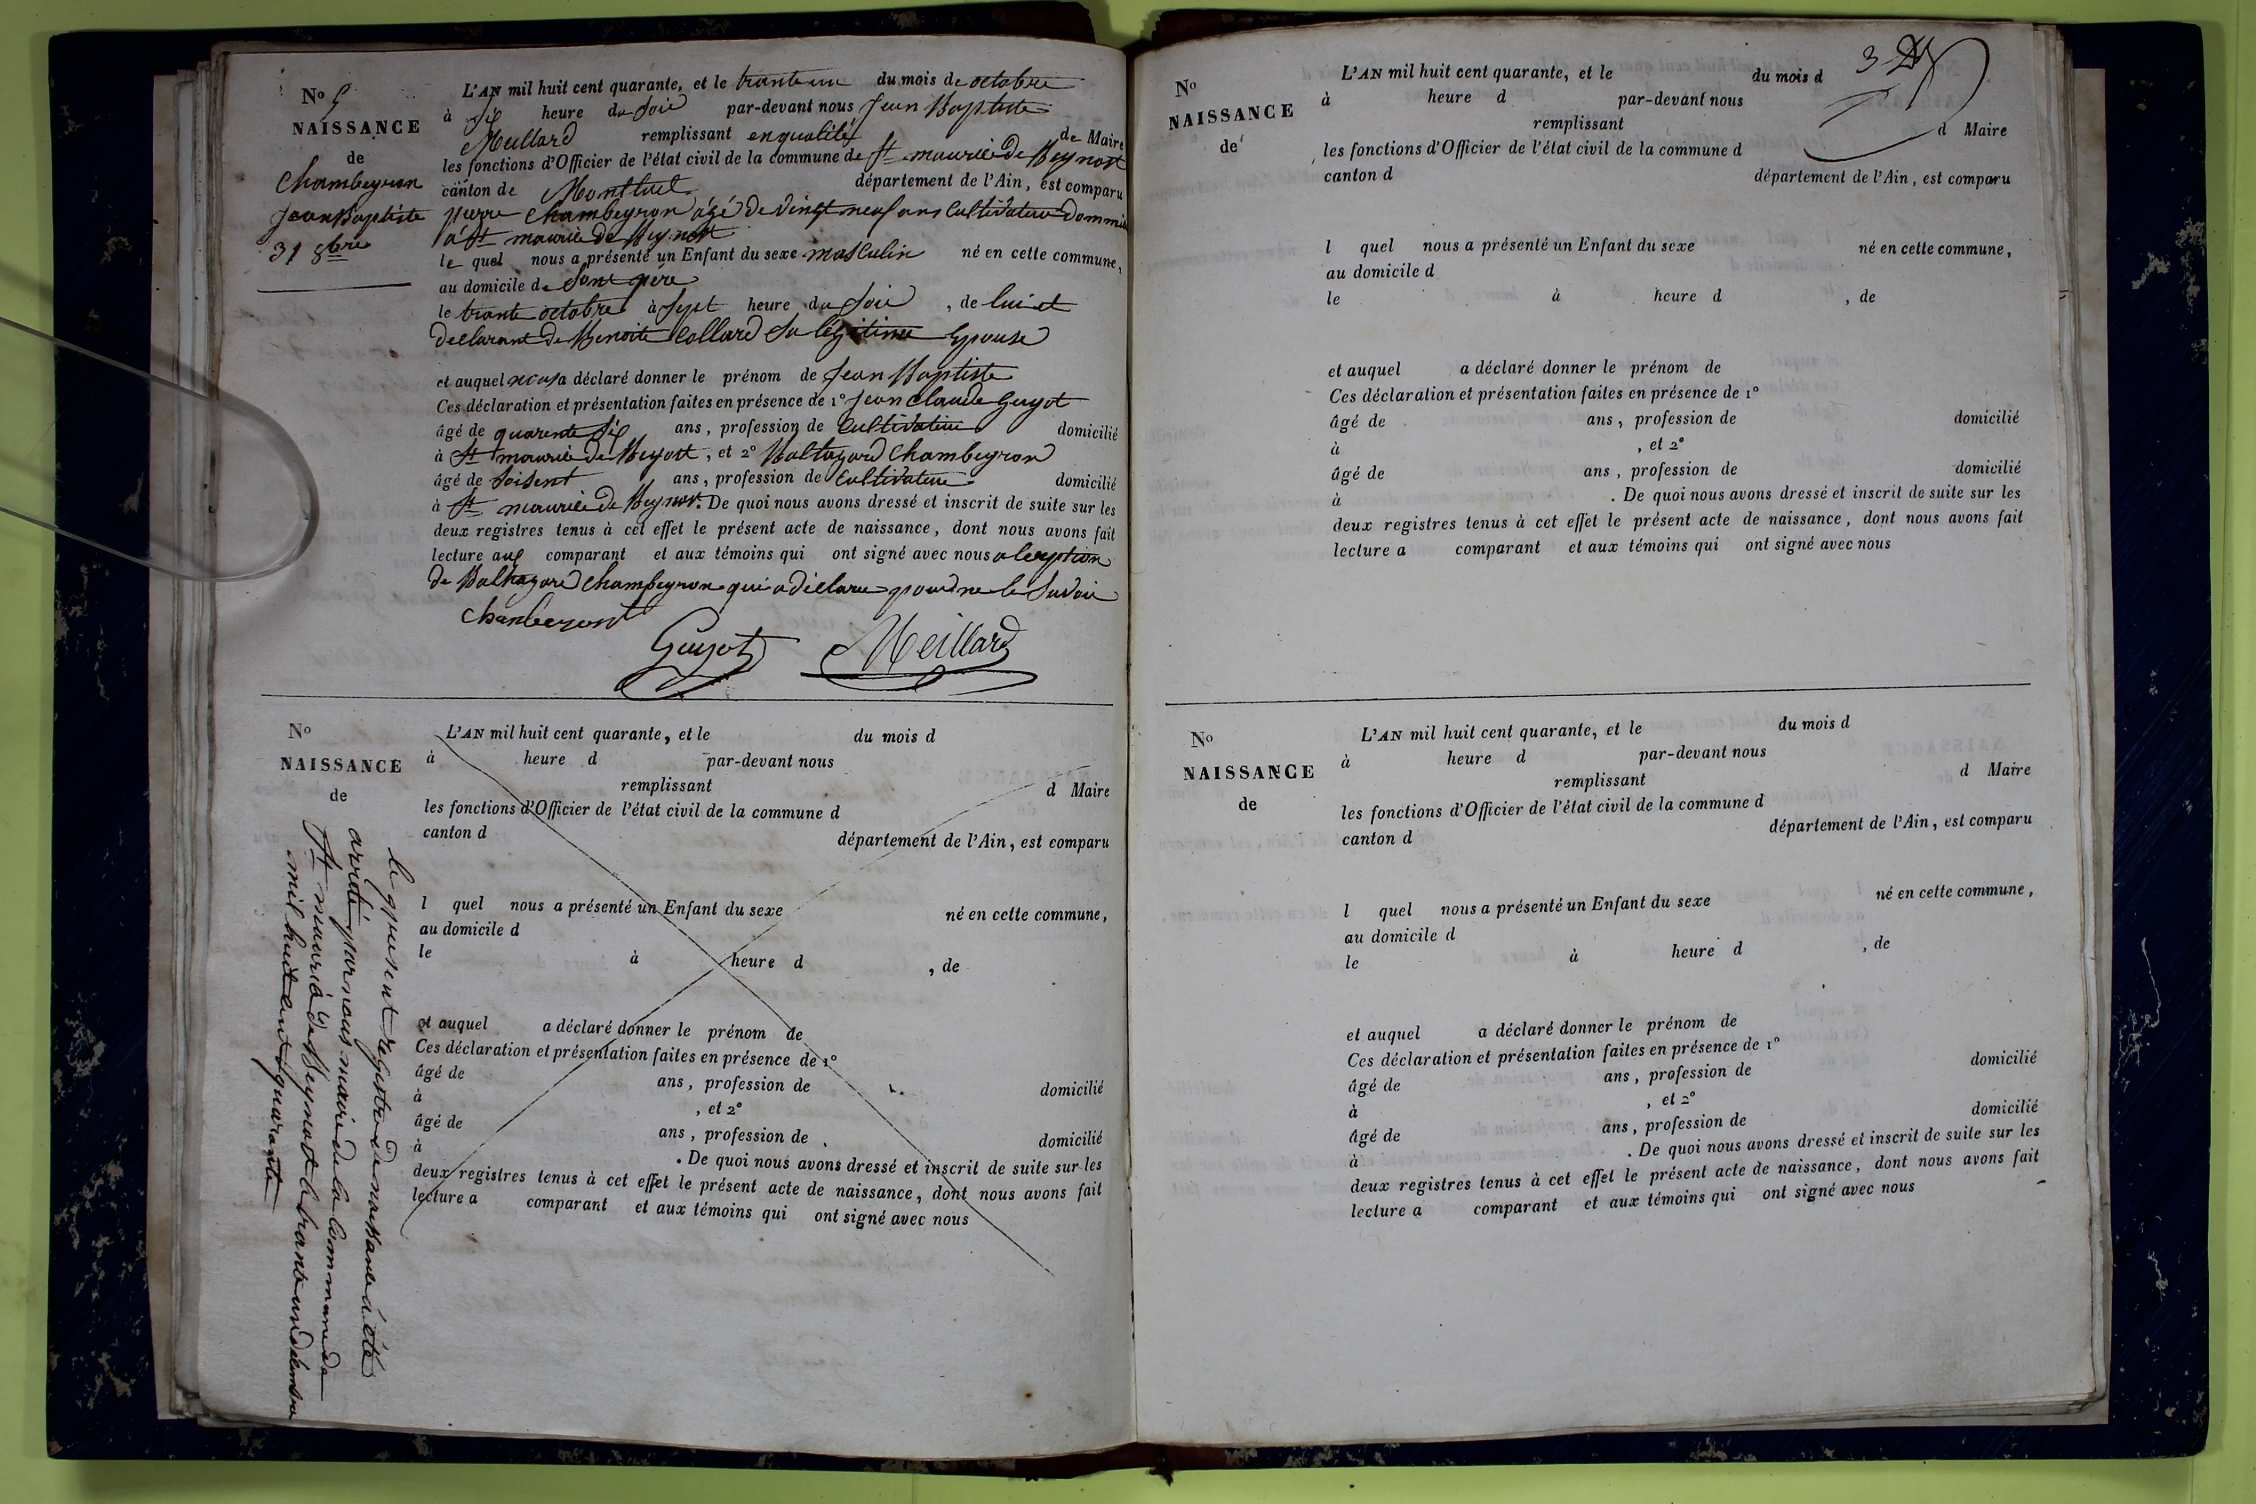 No 5
NAISSANCE
de
Chambeyron
Jean Baptiste
31 8bre
L'AN mil huit cent quarante, et le trante un du mois de octobre
à six heure du Soir par-devant nous Jean Baptiste
Meillard remplissant en qualité de Maire
les fonctions d'Officier de l'état civil de la commune de St maurice De Beynost
canton de Montluel département de l'Ain, est comparu
pierre Chambeyron âgé De vingt neuf ans Cultivateur Dommici
à St maurice De Beynost
le quel nous a présenté un Enfant du sexe masculin né en cette commune,
au domicile de Sont père
le trante octobre à Sept heure du Soir, de lui et
declarant De Benoite Collard Sa légitime Epouse
et auquel nous a déclaré donner le prénom de Jean Baptiste
Ces déclaration et présentation faites en présence de 1° Jean Claude Guyot
âgé de quarente Six ans, profession de Cultivateur domicilié
à St maurice de Beyost, et 2° Baltazard Chambeyron
âgé de Soisent ans, profession de Cultivateur domicilié
à St maurice De Beynos. De quoi nous avons dressé et inscrit de suite sur les
deux registres tenus à cet effet le présent acte de naissance, dont nous avons fait
lecture aux comparant et aux témoins qui ont signé avec nous a lexeption
de Baltazard Chambeyron qui a déclaré pour ne le Savoir
Chanbeyront
Guyot Meillard
No
NAISSANCE
de
L'AN mil huit cent quarante, et le du mois d
à heure d par-devant nous
remplissant d Maire
les fonctions d'Officier de l'état civil de la commune d
canton d département de l'Ain, est comparu
l quel nous a présenté un Enfant du sexe né en cette commune,
au domicile d
le à heure d , de
et auquel a déclaré donner le prénom de
Ces déclaration et présentation faites en présence de 1°
âgé de ans, profession de domicilié
à , et 2°
âgé de ans, profession de domicilié
à . De quoi nous avons dressé et inscrit de suite sur les
deux registres tenus à cet effet le présent acte de naissance, dont nous avons fait
lecture a comparant et aux témoins qui ont signé avec nous
le present registre De naissance à été
arrêté par nous maire de la commune de
St maurice De Beynost le trante un décembre
mil huit cent quarante
No
NAISSANCE
de
L'AN mil huit cent quarante, et le du mois d
à heure d par-devant nous
remplissant d Maire
les fonctions d'Officier de l'état civil de la commune d
canton d département de l'Ain, est comparu
l quel nous a présenté un Enfant du sexe né en cette commune,
au domicile d
le à heure d , de
et auquel a déclaré donner le prénom de
Ces déclaration et présentation faites en présence de 1°
âgé de ans, profession de domicilié
à , et 2°
âgé de ans, profession de domicilié
à . De quoi nous avons dressé et inscrit de suite sur les
deux registres tenus à cet effet le présent acte de naissance, dont nous avons fait
lecture a comparant et aux témoins qui ont signé avec nous
No
NAISSANCE
de
L'AN mil huit cent quarante, et le du mois d
à heure d par-devant nous
remplissant d Maire
les fonctions d'Officier de l'état civil de la commune d
canton d département de l'Ain, est comparu
l quel nous a présenté un Enfant du sexe né en cette commune,
au domicile d
le à heure d , de
et auquel a déclaré donner le prénom de
Ces déclaration et présentation faites en présence de 1°
âgé de ans, profession de domicilié
à , et 2°
âgé de ans, profession de domicilié
à . De quoi nous avons dressé et inscrit de suite sur les
deux registres tenus à cet effet le présent acte de naissance, dont nous avons fait
lecture a comparant et aux témoins qui ont signé avec nous